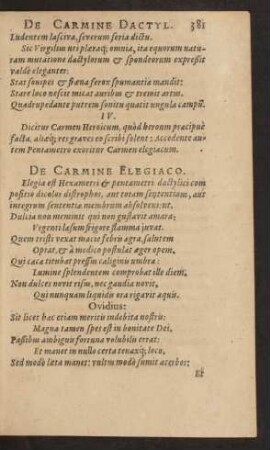 DE CARMINE DACTYL. 381
Ludentem lasciva, severum seria dictu.
Sic Virgilius uti pleraq; omnia, ita equorum natu-
ram mixtione dactylorum & spondeorum expressit
valdè eleganter:
Stat sonipes & fræna ferox spumantia mandit:
Stare loco nescit micat auribus & tremit artus.
Quadrupedante putrem sonitu quatit ungula campũ.
IV.
Dicitur Carmen Heroicum, quòd heroum præcipuè
facta, aliæq; res graves eo scribi solent: Accedente au-
tem Pentametro exoritur Carmen elegiacum.
DE CARMINE ELEGIACO.
Elegia est Hexametri & pentametri dactylici com
positio dicolos distrophos, aut totam sententiam, aut
integrum sententiæ membrum absolvens: ut
Dulcia non meminit qui non gustavit amara;
Vegenti lasum frigore flamma juvat.
Quem tristi vexat macie febris agra, salutem
Optat, & à medico postulat æger opem,
Qui cæca titubat pressus caligine umbra:
Lumine splendentem comprobat ille diem,
Non dulces novit risus, nec gaudia novit,
Qui nunquam liquidis ora rigavit aquis.
Ovidius:
Sit licet hoc etiam meritis indebita nostris:
Magna tamen spes est in bonitate Dei,
Passibus ambiguis fortuna volubilis errat:
Et manet in nullo certa tenaxq; loco,
Sed modò læta manet: vultus modò sumit acerbos:
Et